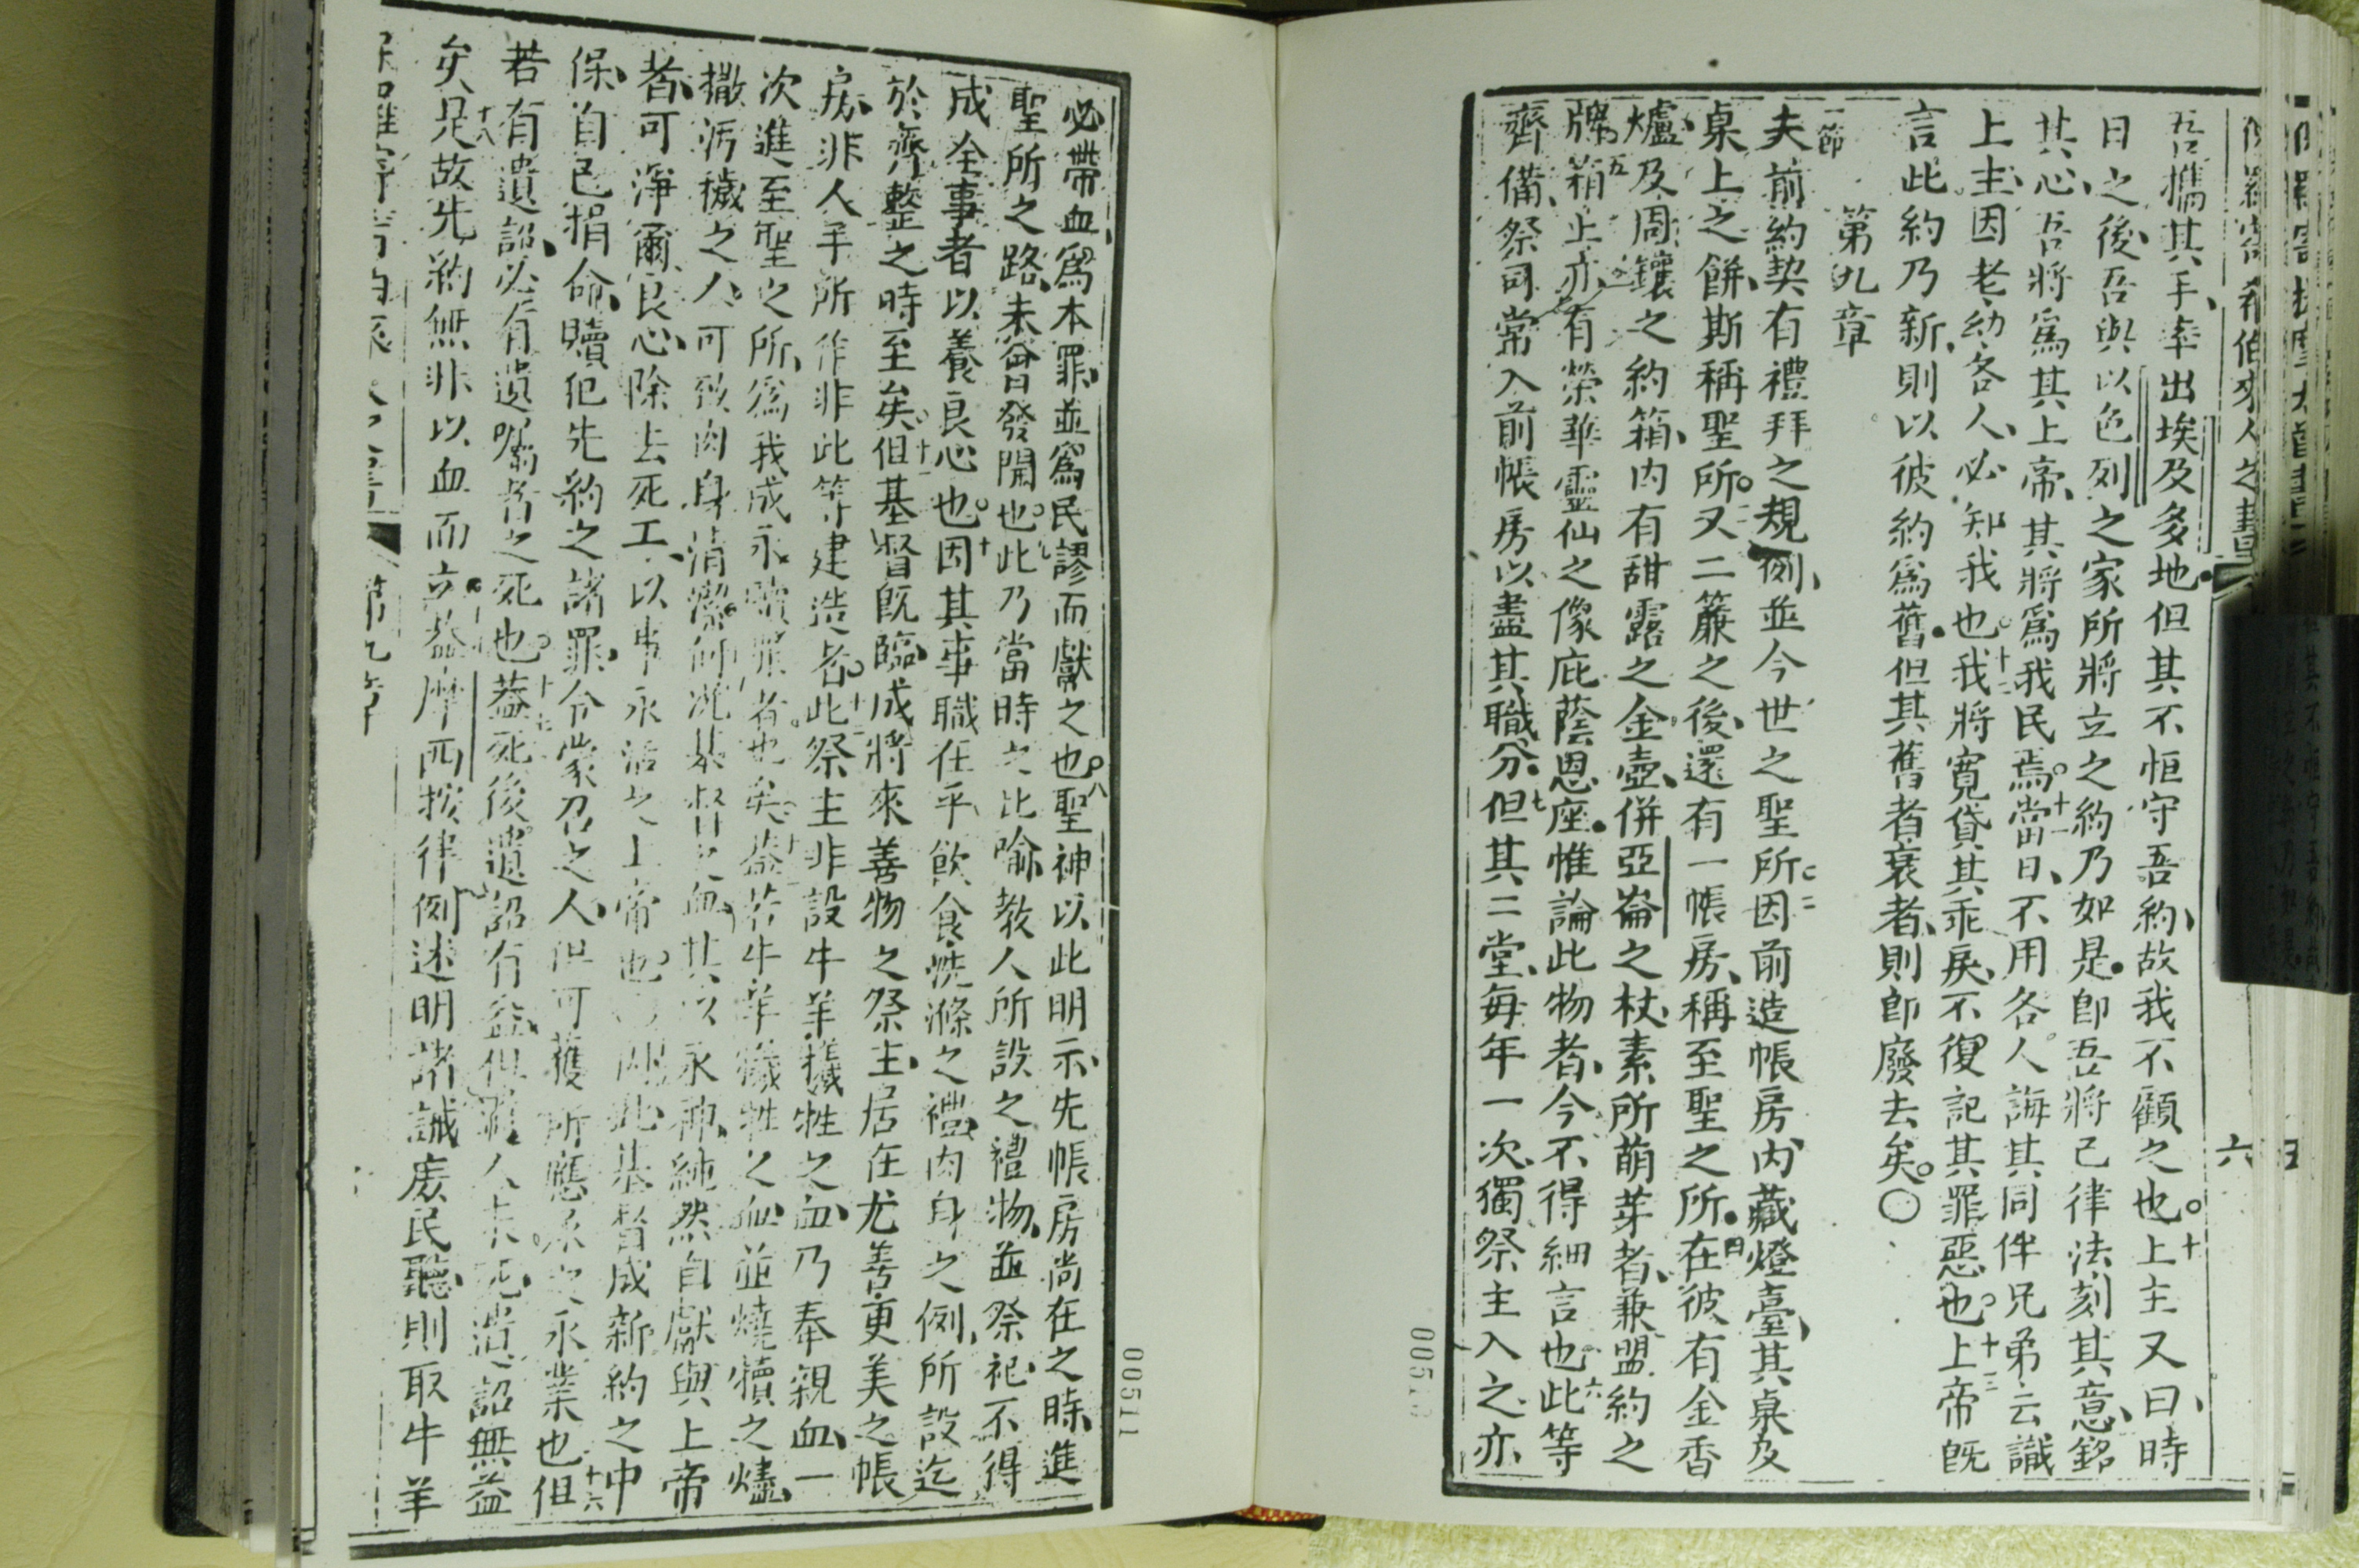 吾攜其手、率出埃及多地、但其不恒守吾約、故我不顧之也。十上主又曰、時
日之後、吾與以色列之家所將立之約乃如是、即吾將己律法刻其意、銘
其心、吾將爲其上帝、其將爲我民焉。十一當日、不用各人誨其同伴兄弟云、識
上主、因老幼各人、必知我也。十二我將寬貸其乖戾、不復記其罪惡也。十三上帝旣
言此約乃新、則以彼約爲舊、但其舊者衰者、則即廢去矣。〇
第九章
一節
夫前約契有禮拜之規例、並今世之聖所。二因前造帳房、內藏燈臺、其桌及
桌上之餅、斯稱聖所。三又二簾之後、還有一帳房、稱至聖之所。四在彼有金香
爐、及周鑲之約箱、內有甜露之金壺、併亞崙之杖、素所萌芽者、兼盟約之
牌、五箱上亦有榮華靈仙之像、庇蔭恩座、惟論此物者、今不得細言也、六此等
齊備、祭司常入前帳房、以盡其職分、七但其二堂、每年一次、獨祭主入之、亦
六
00510
必帶血、爲本罪、並爲民謬而獻之也。八聖神以此明示、先帳房尚在之時、進
聖所之路、未曾發開也。九此乃當時之比喻、教人所設之禮物、並祭祀、不得
成全事者以養良心也。十因其事職在乎飲食、洗滌之禮、肉身之例、所設迄
於齊整之時至矣。十一但基督旣臨、成將來善物之祭主、居在尤善更美之帳
房、非人手所作、非此等建造者。十二此祭主非設牛羊犧牲之血、乃奉親血、一
次進至聖之所、爲我成永贖罪者也矣。十三蓋若牛羊犧牲之血、並燒犢之燼、
撒污穢之人、可致肉身清潔、何況基督之血、其以永神、純然自獻與上帝
者、可淨爾良心、除去死工、以事永活之上帝也。基督成新約之中
保、自己捐命、贖犯先約之諸罪、令蒙召之人、但可獲所應承之永業也。十六但
若有遺詔、必有遺囑者之死也。十七蓋死後、遺詔有益、但人未死、遺詔無益
矣。十八是故先約無非以血而立、蓋摩西按律例述明諸誡、與民聽、則取牛羊
第九章
00511